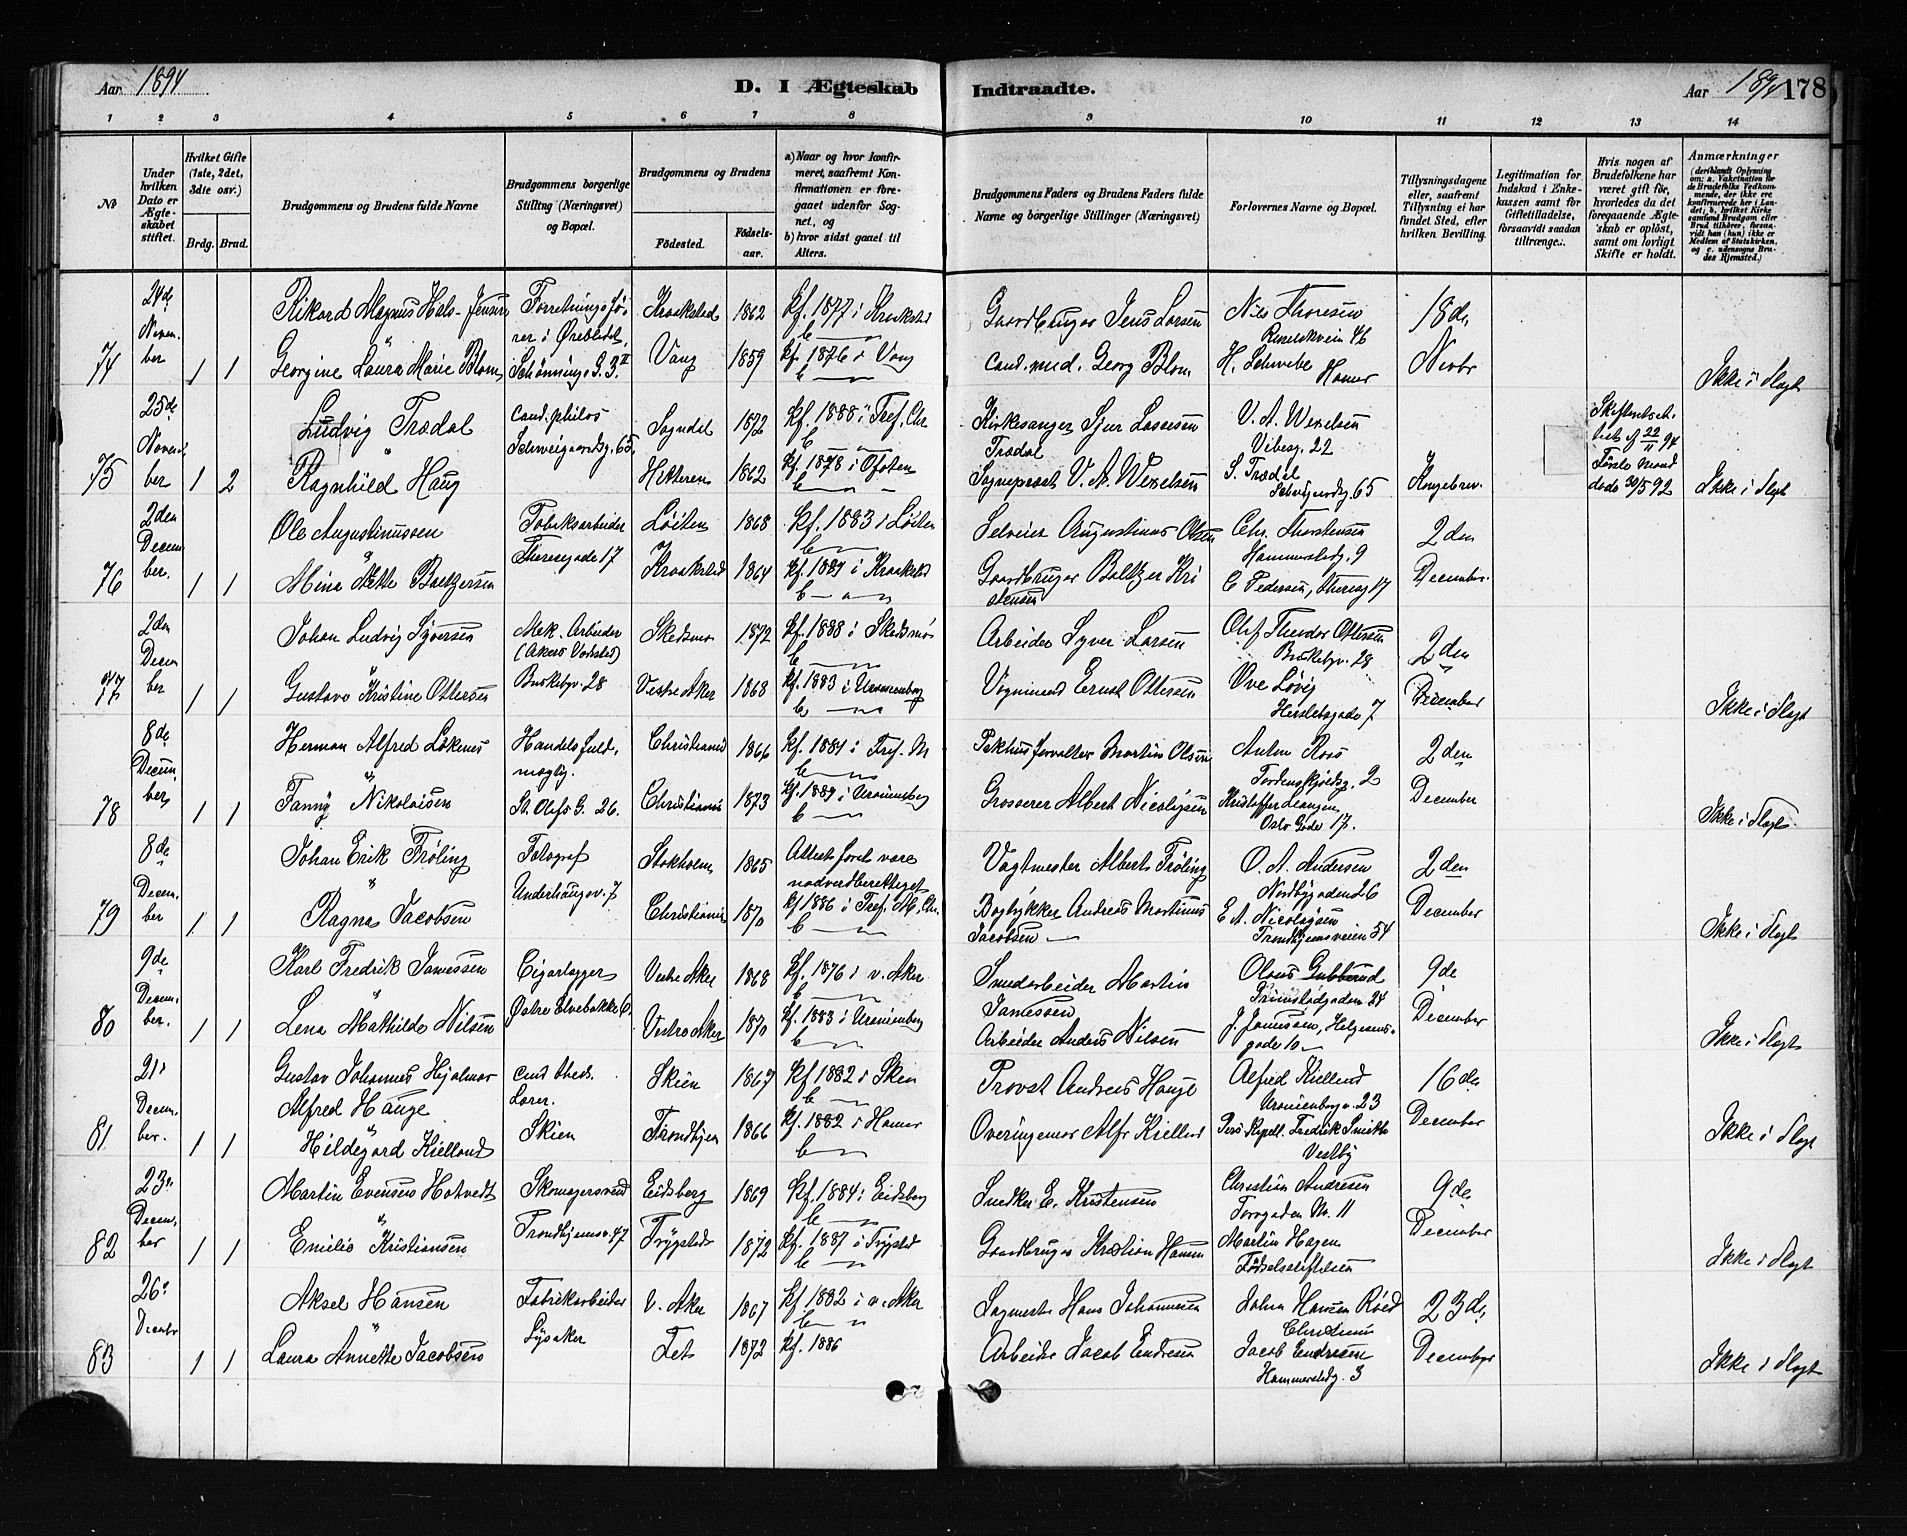 Aar 1894
D. I Ægteskab Indtraadte.
Aar 1894 178
1 2 3 4 5 6 7 8 9 10 11 12 13 14
No
Under hvilken Dato er Ægteskabet stiftet.
Hvilket Gifte (1ste, 2det, 3dte osv.)
Brdg. Brud.
Brudgommens og Brudens fulde Navne
Brudgommens borgerlige Stilling (Næringsvei) og Bopæl.
Brudgommens og Brudens
Fødested. Fødselsaar.
a) Naar og hvor konfirmeret, saafremt Konfirmationen er foregaaet udenfor Sognet, og
b) hvor sidst gaaet til Alters.
Brudgommens Faders og Brudens Faders fulde Navne og borgerlige Stillinger (Næringsvei)
Forlovernes Navne og Bopæl.
Tillysningsdagene eller, saafremt Tillysning ei har fundet Sted, efter hvilken Bevilling.
Legitimation for Indskud i Enkekassen samt for Giftetilladelse, forsaavidt saadan tiltrænges.
Hvis nogen af Brudefolkene har været gift før, hvorledes da det foregaaende Ægteskab er opløst, samt om lovligt Skifte er holdt.
Anmærkninger (deriblandt Oplysning om: a. Vakcination for de Brudefolks Vedkommende, der ikke ere konfirmerede her i Landet; b. hvilket Kirkesamfund Brudgom eller Brud tilhører, forsaavidt han (hun) ikke er Medlem af Statskirken, og c. udensogns Brudes Hjemsted.)
74 24de November 1 1
Rikard Magnus Hals-Jensen Kraakstad 1862 Kf. 1877 i Kraakstad
Gaardbruger Jens Larsen Nils Thoresen 18de
Georgine Laura Marie Blom Vang 1859 Kf. 1876 i Vang
Cand. med. Georg Blom H. Schwebe Hamar Novbr Ikke i Slægt
75 25de November 1 2
Ludvig Trædal Cand. philos Schweigaardsg. 65. Sogndal 1872 Kf. 1888 i Tref. Chr
Kirkesanger Sjur Lassesen Trædal V. A. Wexelsen Vibesg. 22
Ragnhild Haug Hitteren 1862 Kf. 1878 i Ofoten
Sogneprest V. A. Wexelsen S. Trædal 65 Kongebrev. 22/11 94 døde 30/5 92 Ikke i Slægt
76 2den December. 1 1
Ole Augustinussen Fabriksarbeider Theresegade 17 Løiten 1868 Kf. 1883 i Løiten
Selveier Augustinus Olsen Chr. Thorstensen Hammersborg. 9 2den
Mina Mathe Baltzersen Kraakstad 1864 Kf. 1881 i Kraakstad
Gaardbruger Baltzer Kristensen C. Pedersen, Theresg 17 December.
77 2den December 1 1
Johan Ludvig Syversen Mek. Arbeider (Akers Værksted) Skedsmo 1872 Kf. 1888 i Skedsmo
Arbeider Syver Larsen Olaf Theodor Ottersen 28 2den
Gustava Kristine Ottersen 28 Vestre Aker 1868 Kf. 1883 i Uranienborg
Vognmand Ernst Ottersen Ove Løvig Herslebsgade 7 December Ikke i Slægt
78 8de December 1 1
Herman Alfred Løkenes Handelsfuldmægtig. Christiania 1866 Kf. 1881 i Tref. M
Pakhusforvalter Martin Olsen Anton Roos Tordenskjoldsg. 2 2den
Fanny Nikolaisen St. Olafs G. 26. Christiania 1873 Kf. 1889 i Uranienborg
Grosserer Albert Nicolaysen Kristoffer Leangen Oslo Gade 17. December Ikke i Slægt
79 8de December 1 1
Johan Erik Frøling Fotograf Underhaugsv. 7 Stokholm 1865 Attest foret være nadverdberettiget
Vagtmester Albert Frøling O. A. Andersen Nordbygaden 26 2den
Ragna Jacobsen Christiania 1870 kf 1886 i Tref. M. Chr.
Bogtykker Andreas Martinus Jacobsen E. A. Nicolaysen Trondhjemsveien 54 December Ikke i Slægt
80 9de December. 1 1
Karl Fredrik Janessen Cigarlægger Østre Elvebakke 6. Vestre Aker 1868 Kf. 1876 i v. Aker
Smedarbeider Martin Janessen Olaus Gubberud 24 9de
Lena Mathilde Nilsen Vestre Aker 1870 Kf. 1883 i Uranienborg
Arbeider Anders Nilsen J. Janessen, Helgesensgade 10 December Ikke i Slægt
81 21de December. 1 1
Gustav Johannes Hjalmar Alfred Hauge Cand theol. Lærer. Skien Skien 1867 Kf 1882 i Skien
Provst Andreas Hauge Alfred Kielland Uranienborgv. 23 16de
Hildegard Kielland Trondhjem 1866 Kf. 1882 i Hamar
Overingeniør Alfr Kielland Pers. Kapell. Fredrik Smith Vestby December Ikke i Slægt
82 23de December 1 1
Martin Evensen Hotvedt Skomagersvend Trondhjemsv. 47 Eidsberg 1869 Kf. 1884 i Eidsberg
Snedker E. Kristensen Christian Andresen Torvgaden No. 11 9de
Emilie Kristiansen Trygstad 1872 Kf. 1887 i Trygstad
Gaardbruger Kristian Hansen Martin Hagen Fødselsstiftelsen December Ikke i Slægt
83 26de Decembr 1 1
Aksel Hansen Fabrikarbeider Lysaker V. Aker 1867 Kf 1882 i v. Aker
Sagmester Hans Johannesen Johan Hansen Røed 23de
Laura Annette Jacobsen Fet 1872 Kf. 1886
Arbeider Jacob Endresen Jacob Endresen Hammersborg. 3 December Ikke i Slægt